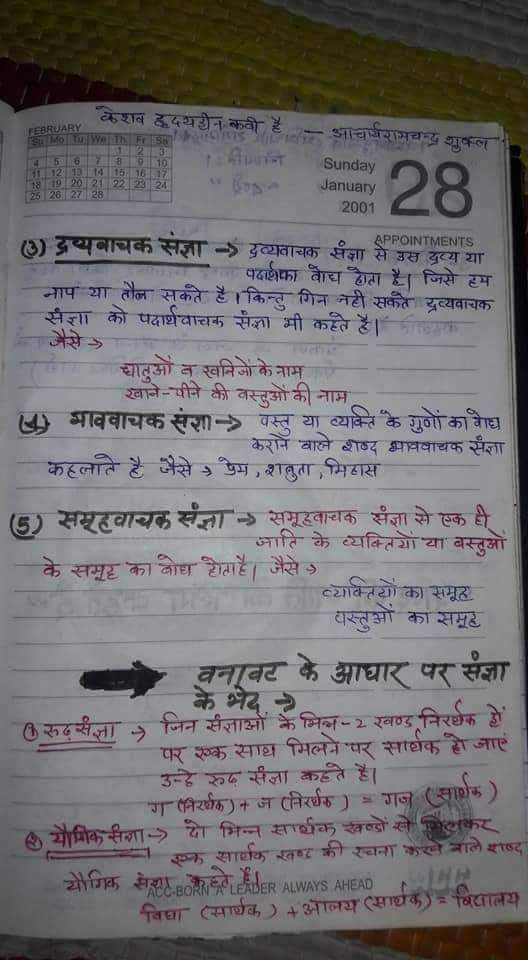 केशव हृदयहीन कवी है — आचार्यरामचन्द्र शुक्ल
FEBRUARY
Su Mo Tu We Th Fr Sa
1 2 3
4 5 6 7 8 9 10
11 12 13 14 15 16 17
18 19 20 21 22 23 24
25 26 27 28
Sunday
January
2001
28
APPOINTMENTS
(3) द्रव्यवाचक संज्ञा → द्रव्यवाचक संज्ञा से उस द्रव्य या
पदार्थका बोध होता है। जिसे हम
नाप या तौल सकते है। किन्तु गिन नही सकते द्रव्यवाचक
संज्ञा को पदार्थवाचक संज्ञा भी कहते है।
जैसे →
धातुओं व खनिजों के नाम
खाने-पीने की वस्तुओं की नाम
(4) भाववाचक संज्ञा → वस्तु या व्यक्ति के गुणों का बोध
कराने वाले शब्द भाववाचक संज्ञा
कहलाते है जैसे → प्रेम, शत्रुता, मिठास
(5) समूहवाचक संज्ञा → समूहवाचक संज्ञा से एक ही
जाति के व्यक्तियों या वस्तुओं
के समूह का बोध होता है। जैसे →
व्यक्तियों का समूह
वस्तुओं का समूह
बनावट के आधार पर संज्ञा
के भेद →
(1) रुढ़ संज्ञा → जिन संज्ञाओं के भिन्न-2 खण्ड निरर्थक हों
पर एक साथ मिलने पर सार्थक हो जाएं
उन्हे रुढ संज्ञा कहते है।
ग (निरर्थक) + ज (निरर्थक) = गज (सार्थक)
(2) यौगिक संज्ञा → दो भिन्न सार्थक खण्डों से मिलकर
एक सार्थक खण्ड की रचना करने वाले शब्द
यौगिक संज्ञा कहते है।
ACC-BORN A LEADER ALWAYS AHEAD
विद्या (सार्थक) + आलय (सार्थक) = विद्यालय